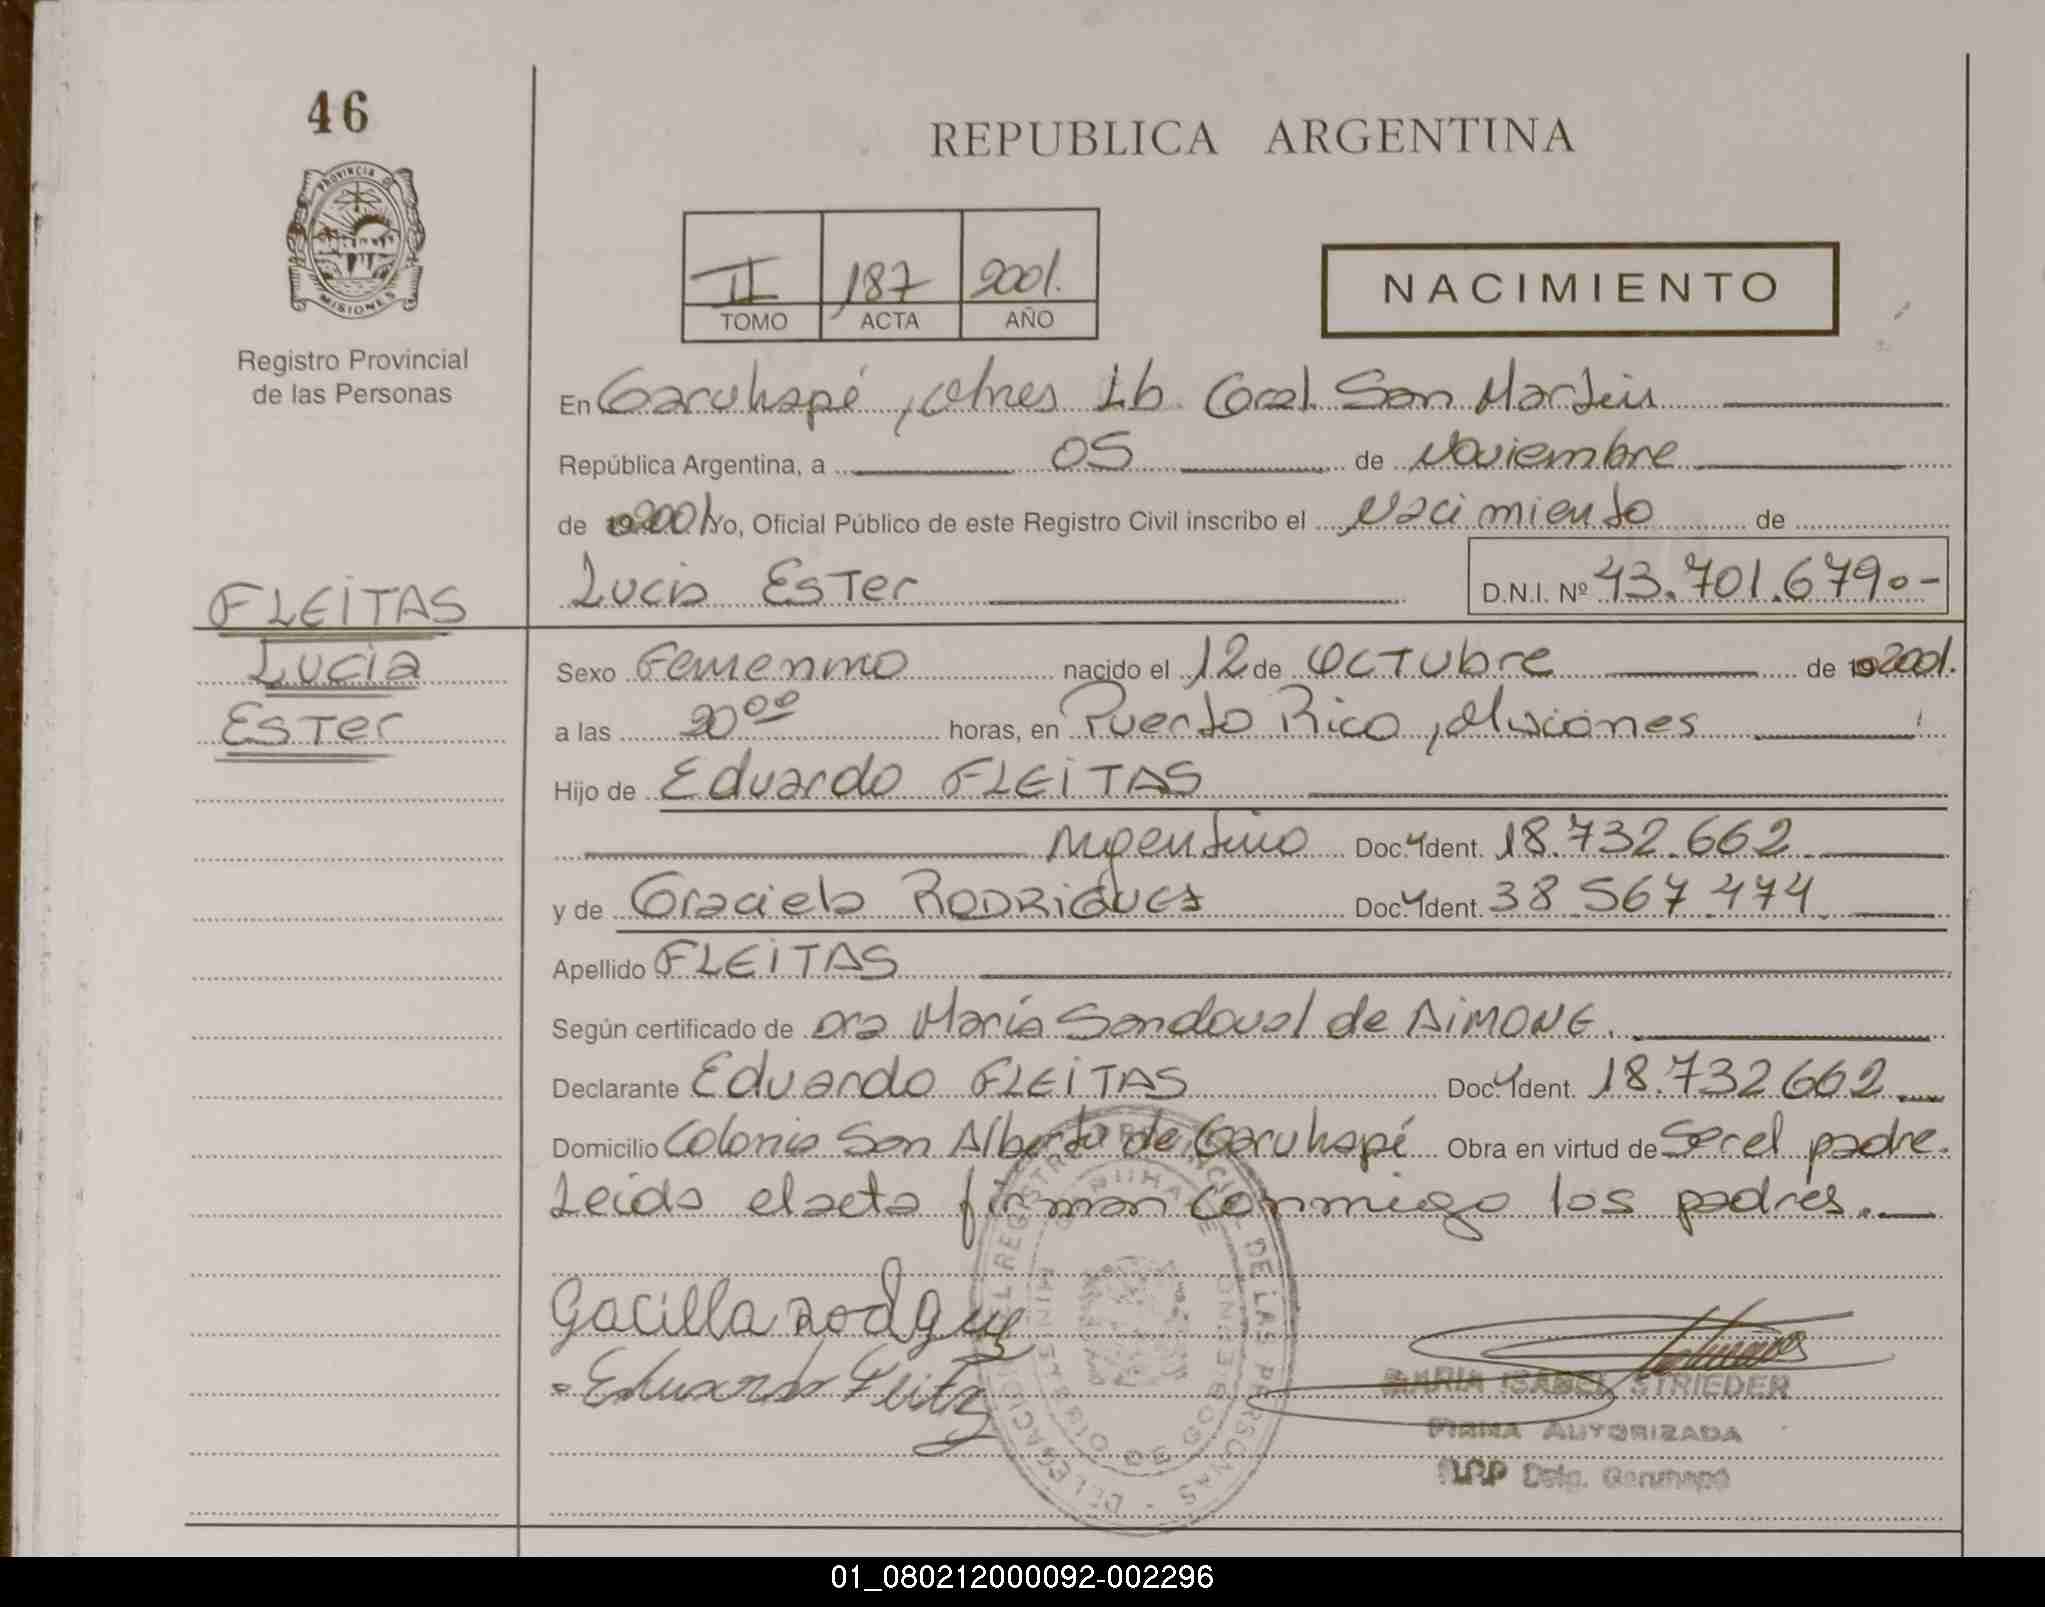 46
PROVINCIA DE
MISIONES
Registro Provincial
de las Personas
REPUBLICA ARGENTINA
II 187 2001.
TOMO ACTA AÑO
NACIMIENTO
En Garuhapé, Mnes Lb. Gral. San Martín
República Argentina, a 05 de Noviembre
de 2001 Yo, Oficial Público de este Registro Civil inscribo el Nacimiento de
Lucia Ester D.N.I. Nº 43.701.679.-
FLEITAS
Lucia
Ester
Sexo Femenino nacido el 12 de Octubre de 2001.
a las 20⁰⁰ horas, en Puerto Rico, Misiones
Hijo de Eduardo FLEITAS
Argentino Doc. Ident. 18.732.662
y de Graciela RODRIGUEZ Doc. Ident. 38.567.474
Apellido FLEITAS
Según certificado de Dra María Sandoval de AIMONE.
Declarante Eduardo FLEITAS Doc. Ident. 18.732.662
Domicilio Colonia San Alberto de Garuhapé Obra en virtud de Ser el padre.
Leida el acta firman conmigo los padres.
Gacilla Rodguez
Eduardo Fleitas
MARIA ISABEL STRIEDER
FIRMA AUTORIZADA
RPP Delg. Garuhapé
01_080212000092-002296